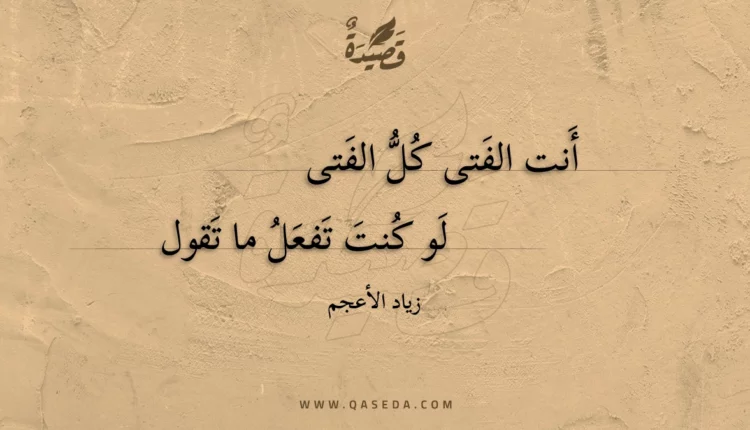 قَصِيدَةٌ
أَنت الفَتى كُلُّ الفَتى
لَو كُنتَ تَفعَلُ ما تَقول
زياد الأعجم
WWW.QASEDA.COM